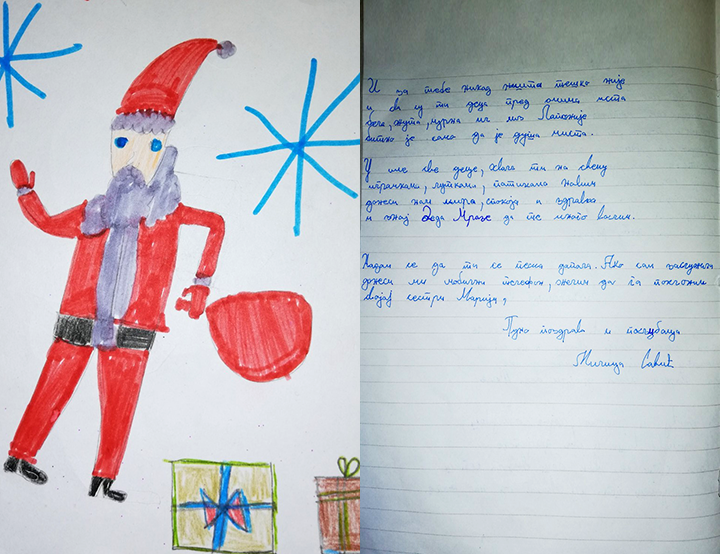 И за тебе никад ништа тешко није
и св су ти деца пред очима иста
бела, жута, црна ил
битно је само да је душа чиста.
У име све деце, хвала ти на свему
играчкама, луткама, патикама новим
донеси нам мира, спокоја и здравља
и знај Деда Мразе да те много волим.
Надам се да ти се песма допала. Ако сам заслужила
донеси ми мобилни телефон, желим да га поклоним
својој сестри Марији,
Пуно поздрава и пољубаца
Милица Савић